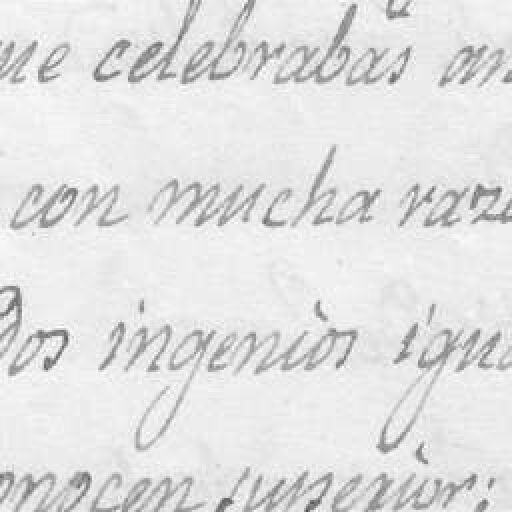 ue celebrabas an
con mucha razo
Dos ingeniòs igua
onocen superiòr;